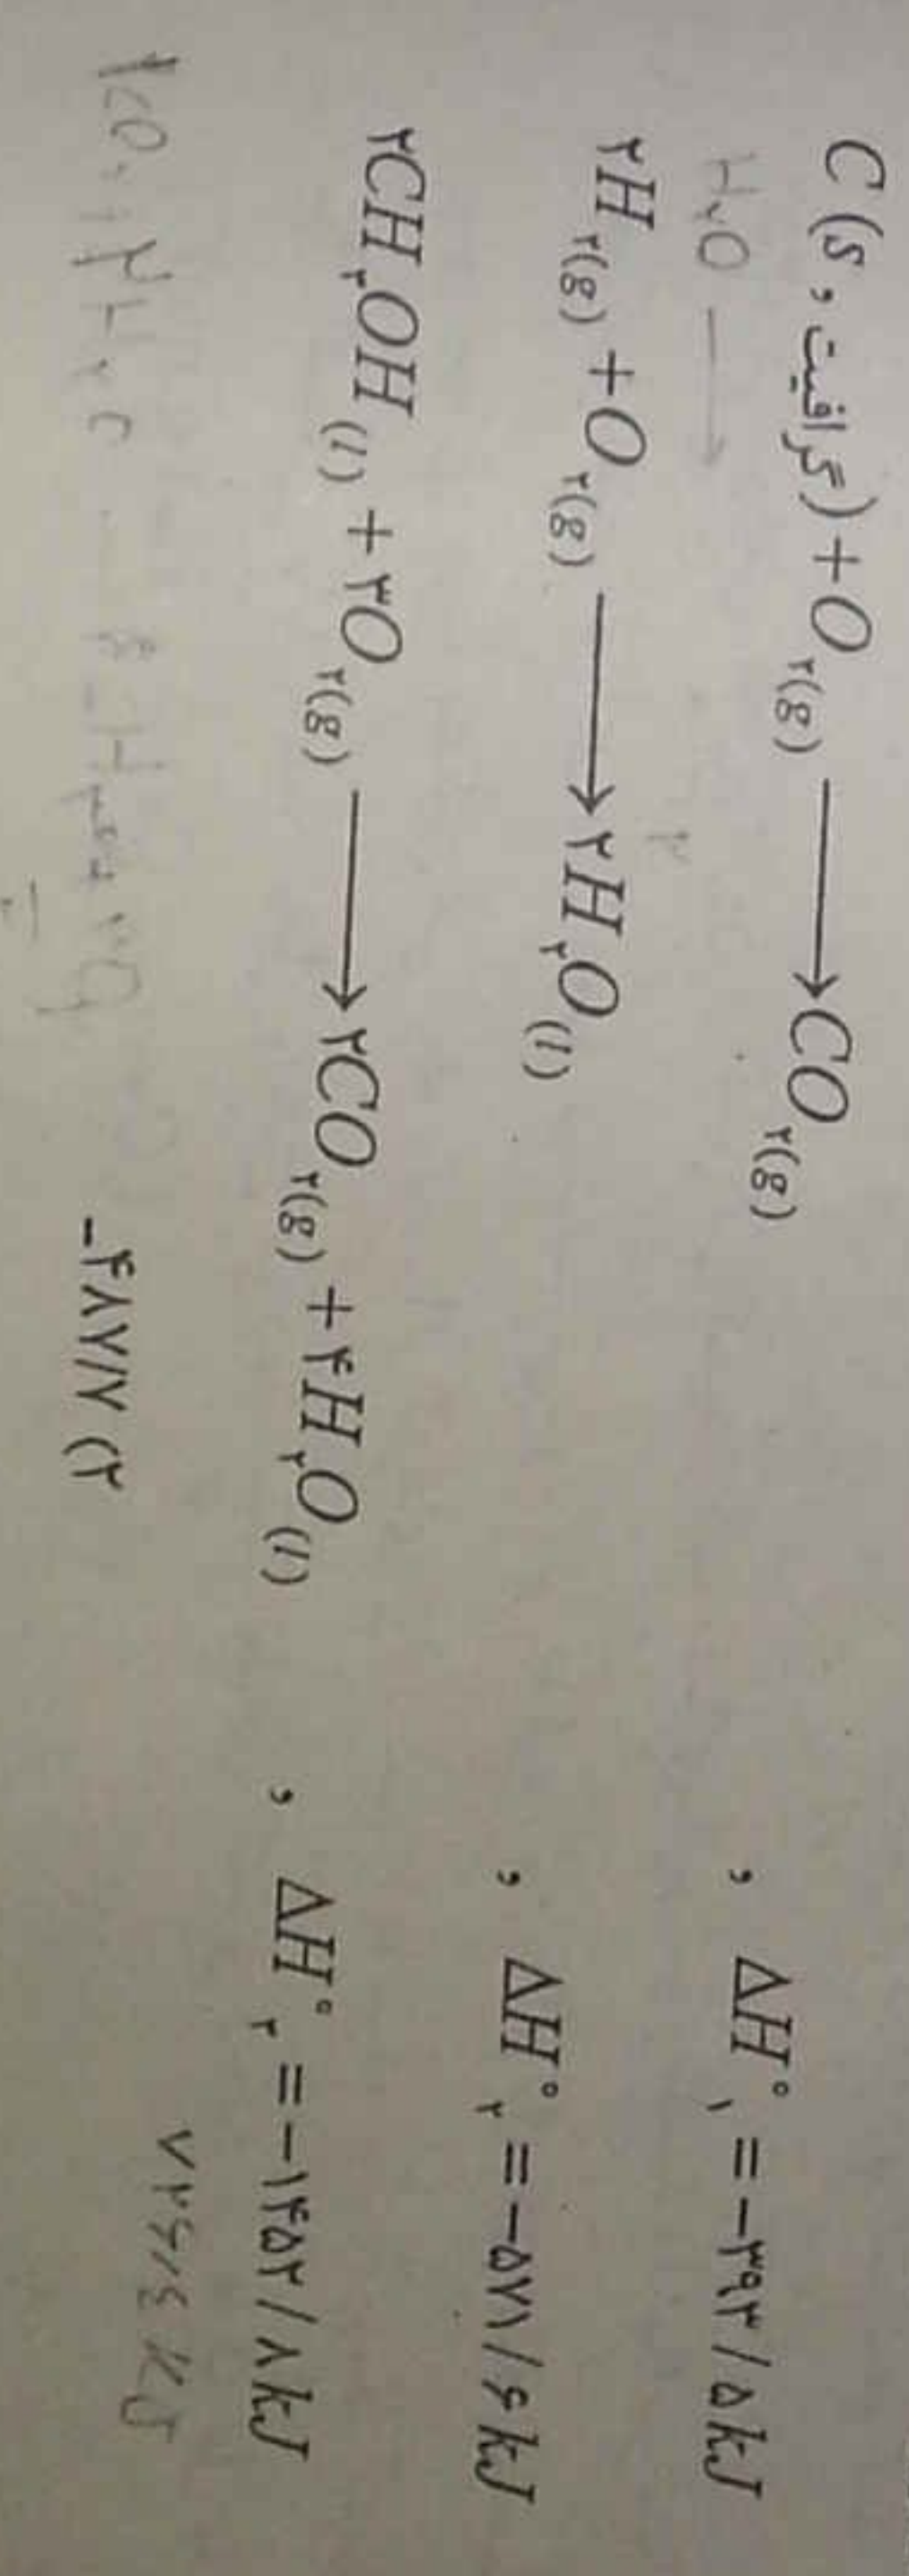 C (s , گرافیت) + O۲(g) → CO۲(g) , ΔH°۱ = -۳۹۳/۵kJ
H۲O →
۲H۲(g) + O۲(g) → ۲H۲O(l) , ΔH°۲ = -۵۷۱/۶kJ
۲CH۳OH(l) + ۳O۲(g) → ۲CO۲(g) + ۴H۲O(l) , ΔH°۳ = -۱۴۵۲/۸kJ
۷۲۶/۴ kJ
-۴۸۷/۷ (۲